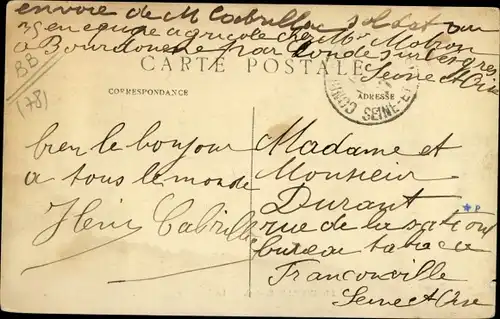 envoie de M Cabrillac soldat au
en equipe agricole chez Mr
a Bourdonne par Conde sur Vesgres
Seine et Oise
CARTE POSTALE
CORRESPONDANCE
ADRESSE
SEINE-ET
BB
(78)
bien le bonjour
a tous le monde
Madame et
Monsieur
Durant
rue de la station
bureau tabac
Franconville
Seine et Oise